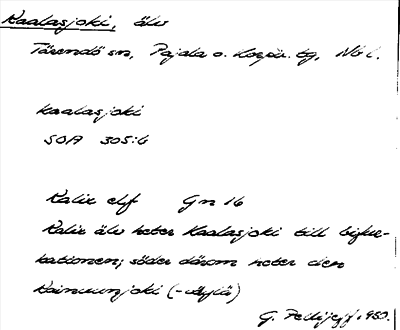 Kaalasjoki, älv
Tärendö sn, Pajala o. Korpil. tg, Nb l.
kaalasjoki
SOA 305:6
Kalix elf Gn 16
Kalix älv heter Kaalasjoki till bifur-
kationen; söder därom heter den
Kainuunjoki (-väylä)
G. Pellijeff 1980.